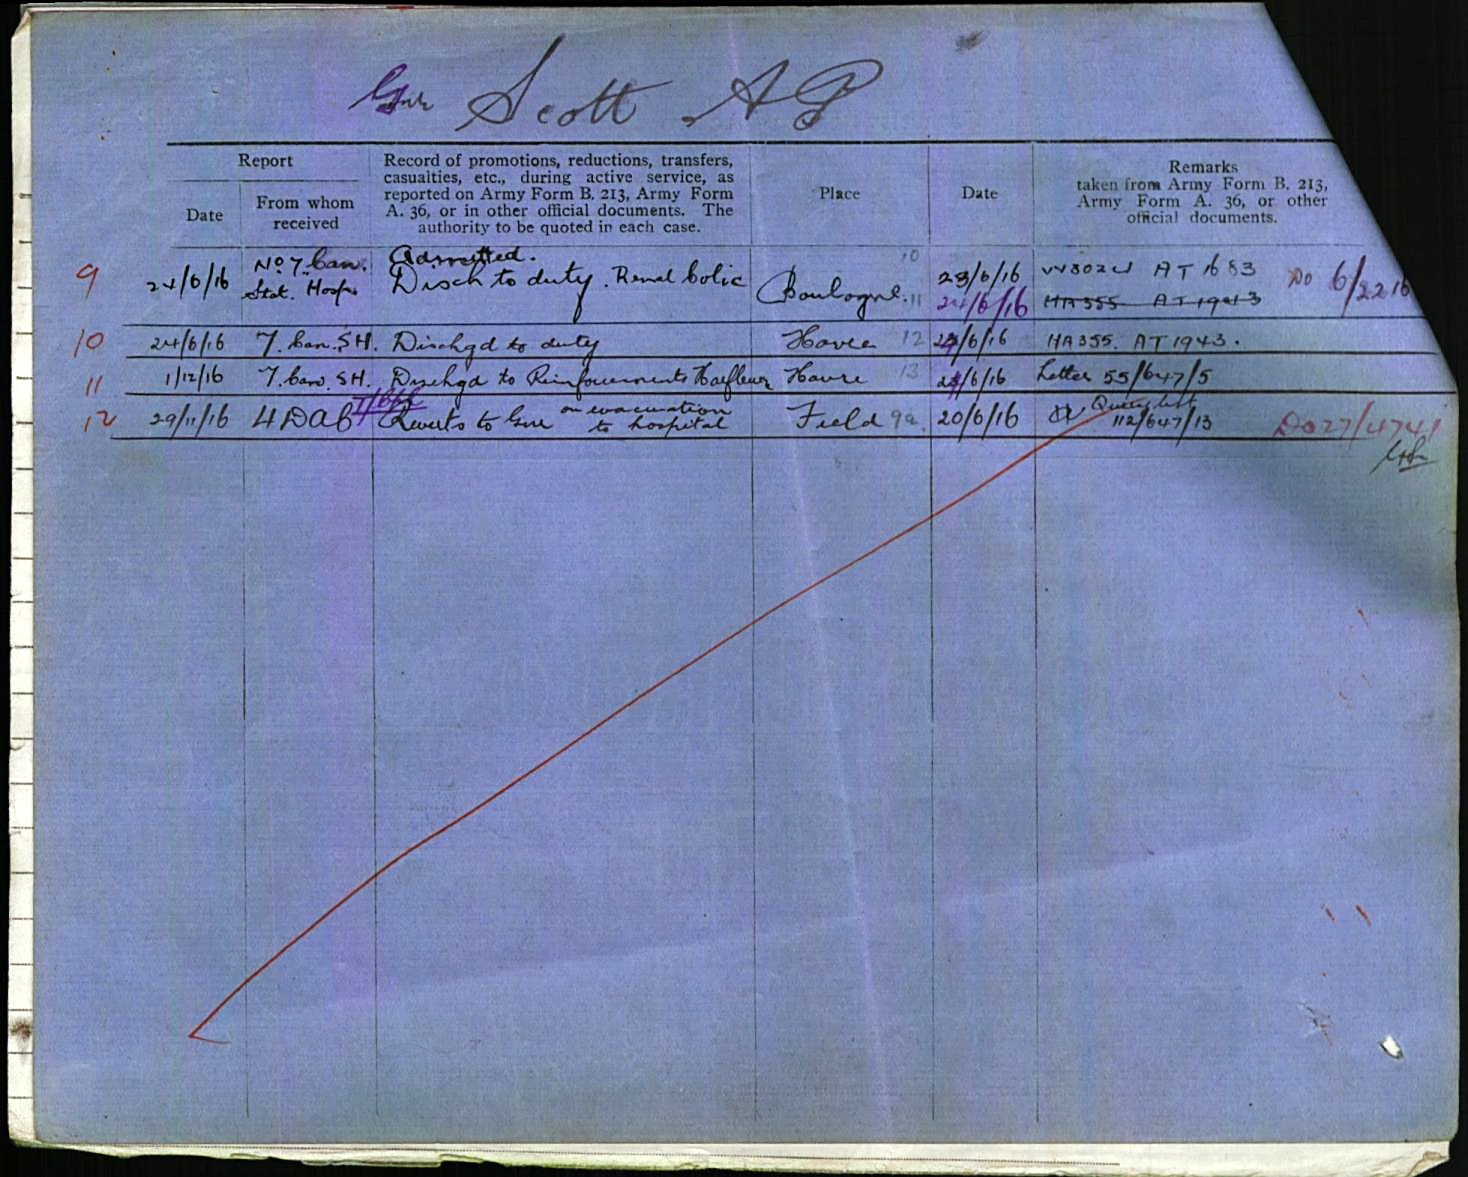 Gnr Scott A P
Report
Date
From whom
received
Record of promotions, reductions, transfers,
casualties, etc., during active service, as
reported on Army Form B. 213, Army Form
A. 36, or in other official documents. The
authority to be quoted in each case.
Place
Date
Remarks
taken from Army Form B. 213,
Army Form A. 36, or other
official documents.
9 24/6/16 No 7. Can. Stat. Hosp.
Admitted.
Disch to duty. Renal Colic
Boulogne. 10 11
23/6/16
24/6/16
W3024 AT 1683
HA355 AT 1943
DO 6/2216
10 24/6/16 7. Can. S.H. Dischgd to duty Havre 12 24/6/16 HA355. AT 1943.
11 1/12/16 7. Can. S.H. Dischgd to Reinforcements Harfleur Havre 13 24/6/16 Letter 55/647/5
12 29/11/16 4 DAC Reverts to Gnr on evacuation to hospital Field 9a. 20/6/16 Query list 112/647/13 DO 27/4741